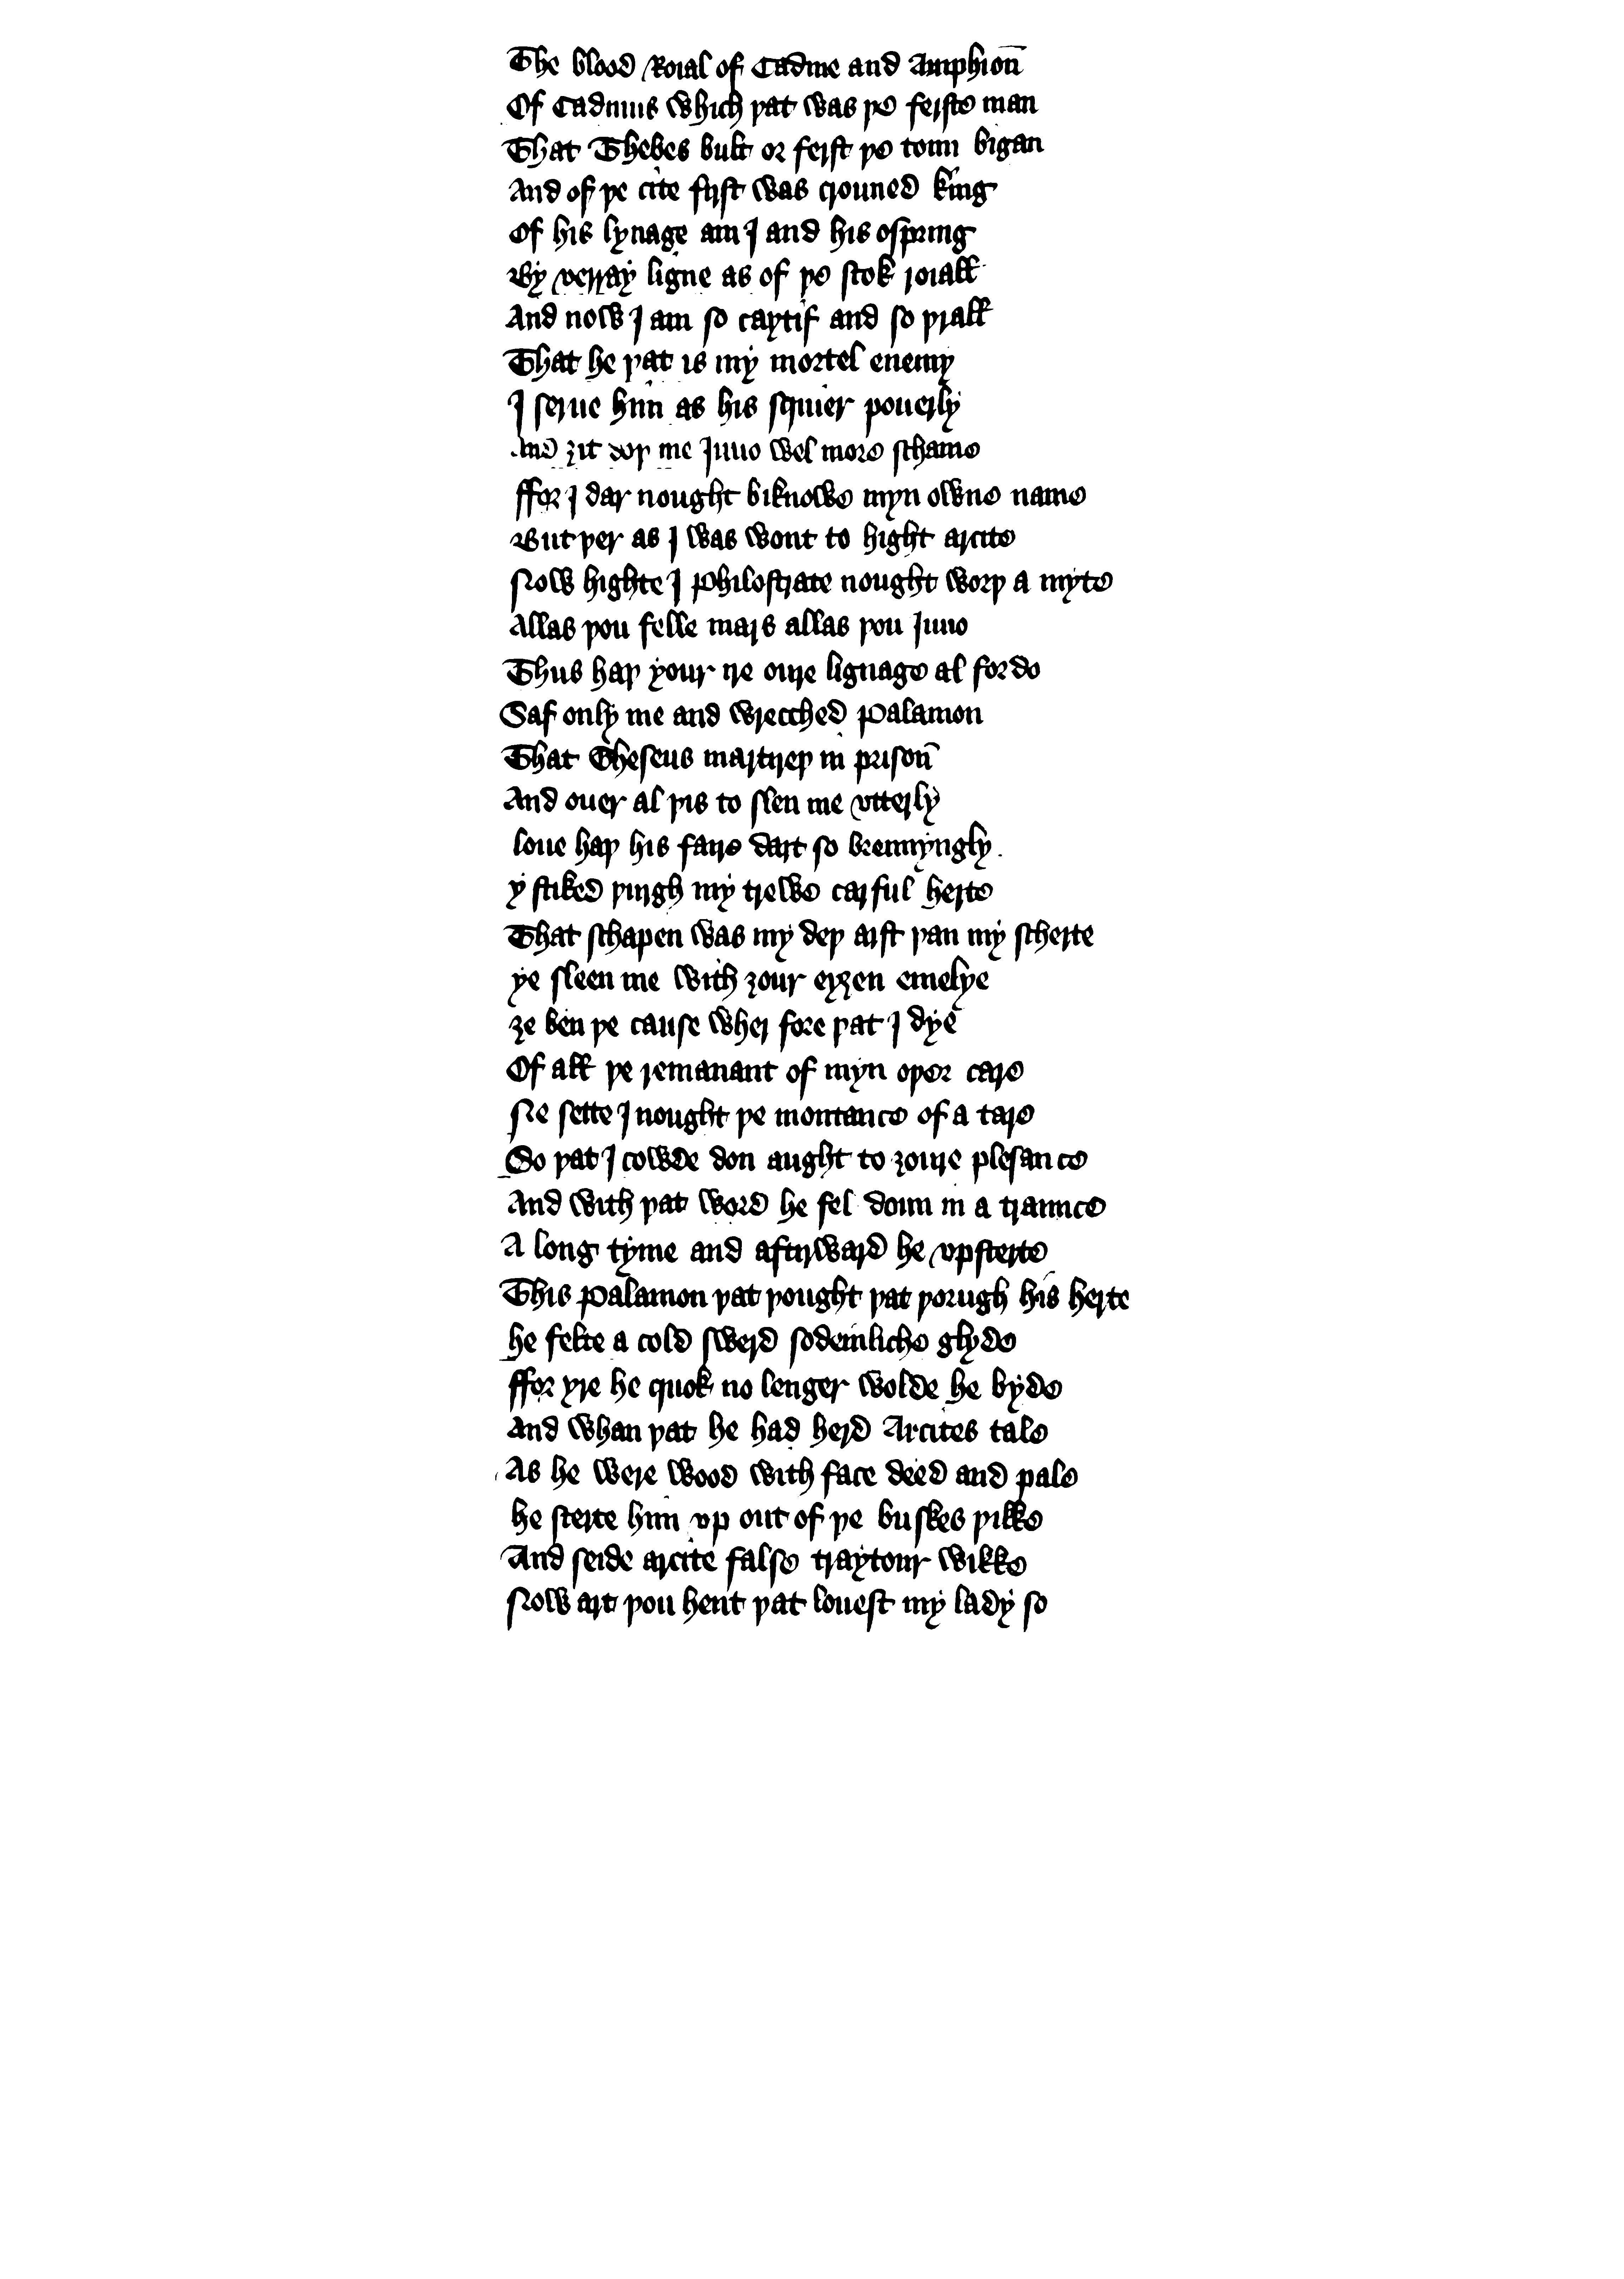 The blood Roial of Cadme and Amphioñ
Of Cadmus which þat was þe ferste man
That Thebes bult or ferst þe toun bigan
And of þe cite first was crouned king
Of his lynage am I and his ofspring
By verray ligne as of þe stok roiall
And now I am so caytif and so þrall
That he þat is my mortel enemy
I serue him as his squier pouerly
And ȝit doþ me Iuno wel more schame
ffor I dar nought biknowe myn owne name
But þer as I was wont to hight arcite
Now highte I Philostrate nought worþ a myte
Allas þou felle mars allas þou Iuno
Thus haþ your ire oure lignage al fordo
Saf only me and wrecched Palamon
That Theseus martireþ in prisoñ
And ouer al þis to slen me vtterly
loue haþ his faire dart so brennyngly
y stiked þurgh my trewe carful herte
That schapen was my deþ arst þan my scherte
ye sleen me with ȝour eyȝen emelye
ȝe ben þe cause wher fore þat I dye
Of all þe remanant of myn oþer care
Ne sette I nought þe montance of a tare
So þat I cowde don aught to ȝoure plesance
And with þat word he fel doun in a traunce
A long tyme and aftirward he vpsterte
This Palamon þat þought þat þorugh his herte
he felte a cold swerd sodeinliche glyde
ffor yre he quok no lenger wolde he byde
And whan þat he had herd Arcites tale
As he were wood with face deed and pale
he sterte him vp out of þe buskes þikke
And seide arcite false traytour wikke
Now art þou hent þat louest my lady so